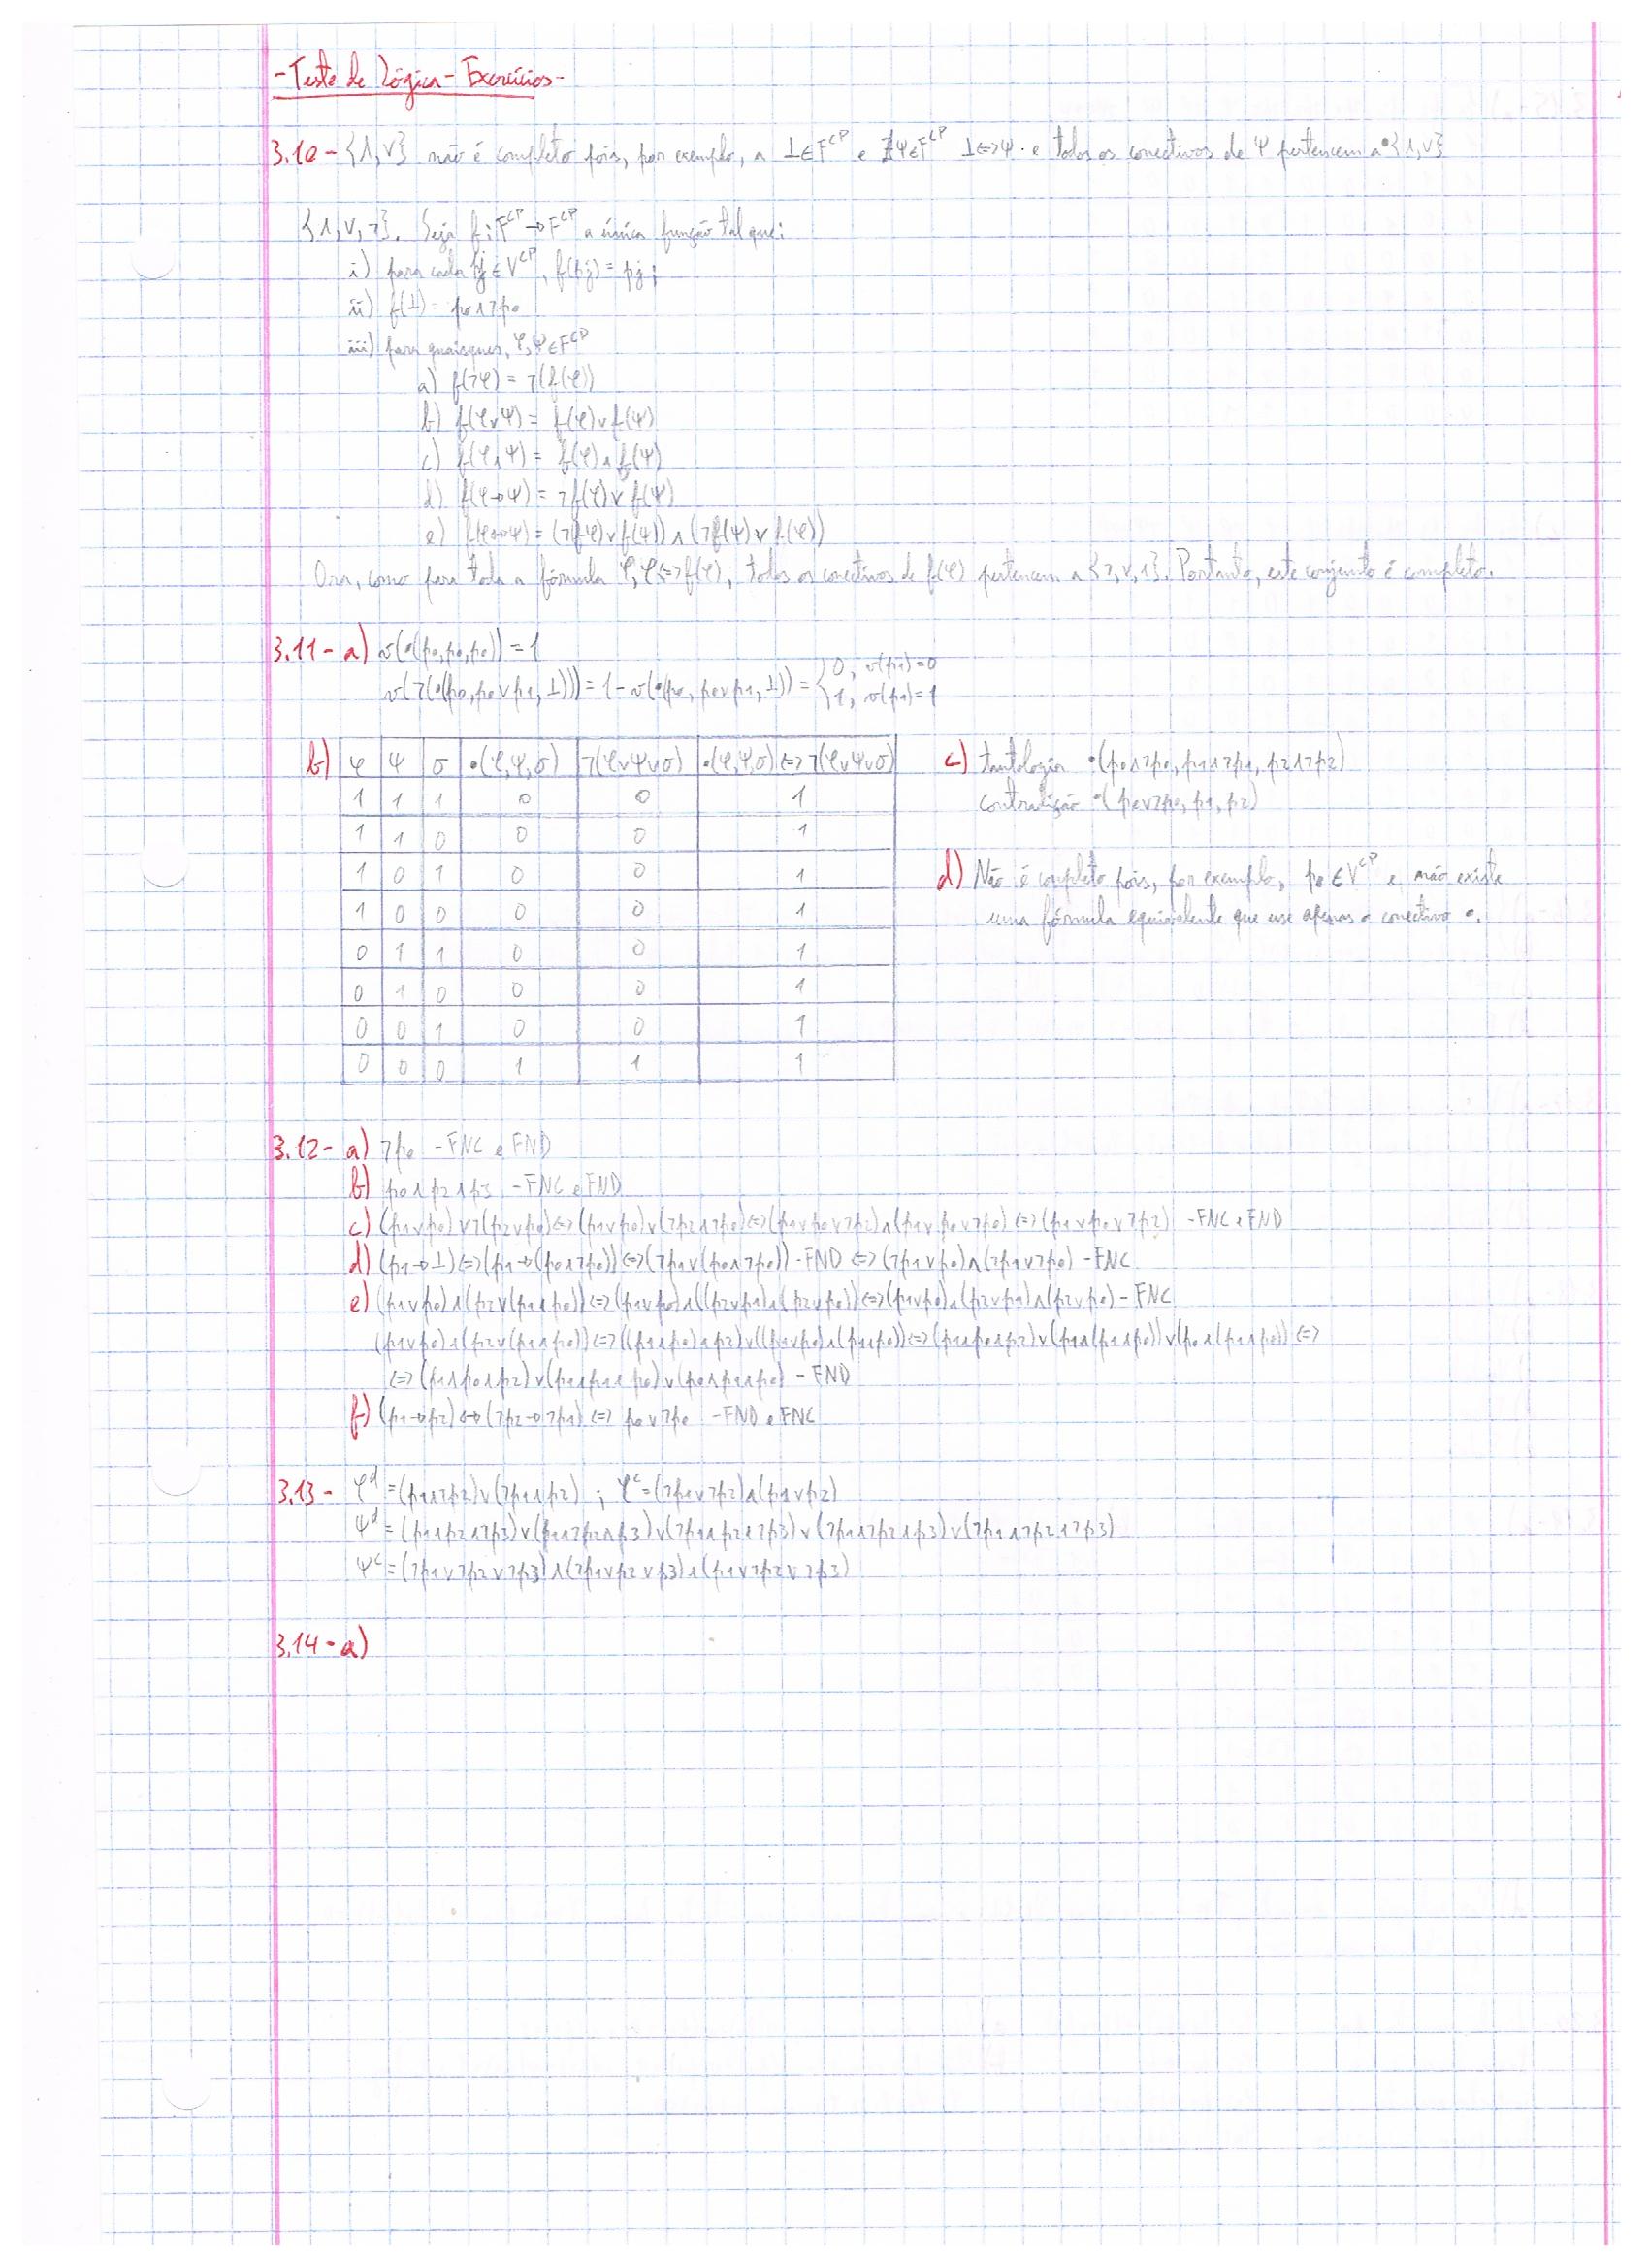 -Teste de Lógica - Exercícios-
3.10 - {∧,∨} não é completo pois, por exemplo, a ⊥∈F^CP e ∄Ψ∈F^CP ⊥⇔Ψ e todos os conectivos de Ψ pertencem a {∧,∨}
{∧,∨,¬}. Seja f:F^CP→F^CP a única função tal que:
i) para cada pj∈V^CP, f(pj) = pj;
ii) f(⊥) = p0∧¬p0
iii) para quaisquer, φ,Ψ∈F^CP
a) f(¬φ) = ¬(f(φ))
b) f(φ∨Ψ) = f(φ)∨f(Ψ)
c) f(φ∧Ψ) = f(φ)∧f(Ψ)
d) f(φ→Ψ) = ¬f(φ)∨f(Ψ)
e) f(φ↔Ψ) = (¬f(φ)∨f(Ψ))∧(¬f(Ψ)∨f(φ))
Ora, como para toda a fórmula φ, φ⇔f(φ), todos os conectivos de f(φ) pertencem a {¬,∨,∧}. Portanto, este conjunto é completo.
3.11 - a) v(•(p0,p0,p0)) = 1
v(¬(•(p0,p0∨p1,⊥))) = 1-v(•(p0,p0∨p1,⊥)) = {0, v(p1)=0
1, v(p1)=1
b) φ Ψ σ •(φ,Ψ,σ) ¬(φ∨Ψ∨σ) •(φ,Ψ,σ)⇔¬(φ∨Ψ∨σ)
1 1 1 0 0 1
1 1 0 0 0 1
1 0 1 0 0 1
1 0 0 0 0 1
0 1 1 0 0 1
0 1 0 0 0 1
0 0 1 0 0 1
0 0 0 1 1 1
c) tautologia •(p0∧¬p0, p1∧¬p1, p2∧¬p2)
contradição •(p0∨¬p0, p1, p2)
d) Não é completo pois, por exemplo, p0∈V^CP e não existe
uma fórmula equivalente que use apenas o conectivo •.
3.12 - a) ¬p0 - FNC e FND
b) p0∧p2∧p3 - FNC e FND
c) (p1∨p0)∨¬(p2∨p0)⇔(p1∨p0)∨(¬p2∧¬p0)⇔(p1∨p0∨¬p2)∧(p1∨p0∨¬p0)⇔(p1∨p0∨¬p2) - FNC e FND
d) (p1→⊥)⇔(p1→(p0∧¬p0))⇔(¬p1∨(p0∧¬p0)) - FND ⇔(¬p1∨p0)∧(¬p1∨¬p0) - FNC
e) (p1∨p0)∧(p2∨(p1∧p0))⇔(p1∨p0)∧((p2∨p1)∧(p2∨p0))⇔(p1∨p0)∧(p2∨p1)∧(p2∨p0) - FNC
(p1∨p0)∧(p2∨(p1∧p0))⇔((p1∧p0)∧p2)∨((p1∨p0)∧(p1∧p0))⇔(p1∧p0∧p2)∨(p1∧(p1∧p0))∨(p0∧(p1∧p0))⇔
⇔(p1∧p0∧p2)∨(p1∧p1∧p0)∨(p0∧p1∧p0) - FND
f) (p1→p2)↔(¬p2→¬p1)⇔ p0∨¬p0 - FND e FNC
3.13 - φ^d = (p1∧¬p2)∨(¬p1∧p2) ; φ^c = (¬p1∨¬p2)∧(p1∨p2)
Ψ^d = (p1∧p2∧¬p3)∨(p1∧¬p2∧p3)∨(¬p1∧p2∧¬p3)∨(¬p1∧¬p2∧p3)∨(¬p1∧¬p2∧¬p3)
Ψ^c = (¬p1∨¬p2∨¬p3)∧(¬p1∨p2∨p3)∧(p1∨¬p2∨¬p3)
3.14 - a)